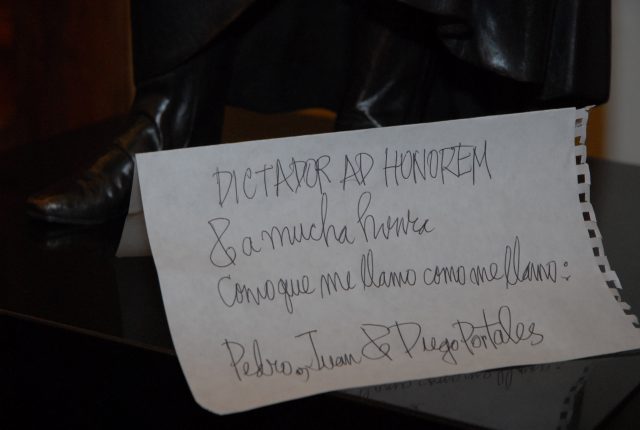 DICTADOR AD HONOREM
& a mucha honra
Como que me llamo como me llamo:
Pedro, Juan & Diego Portales